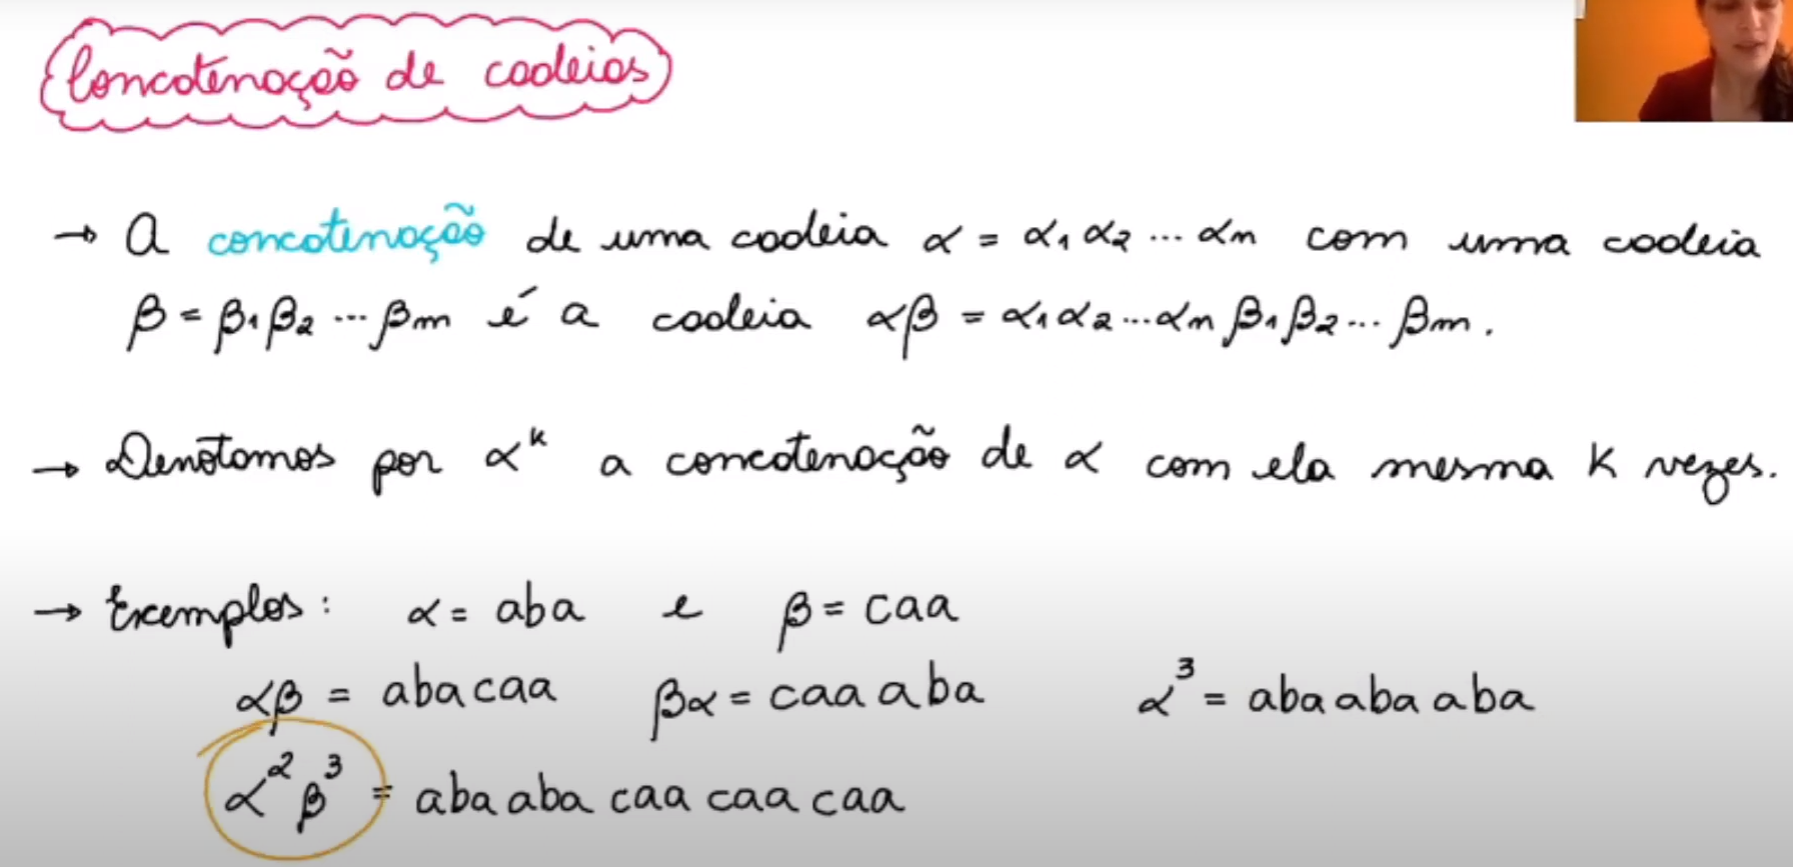 Concatenação de cadeias
→ A concatenação de uma cadeia α = α₁ α₂ ... αₙ com uma cadeia
β = β₁ β₂ ... βₘ é a cadeia αβ = α₁ α₂ ... αₙ β₁ β₂ ... βₘ.
→ Denotamos por αᵏ a concatenação de α com ela mesma K vezes.
→ Exemplos: α = aba e β = caa
αβ = abacaa βα = caa aba α³ = aba aba aba
α²β³ = aba aba caa caa caa